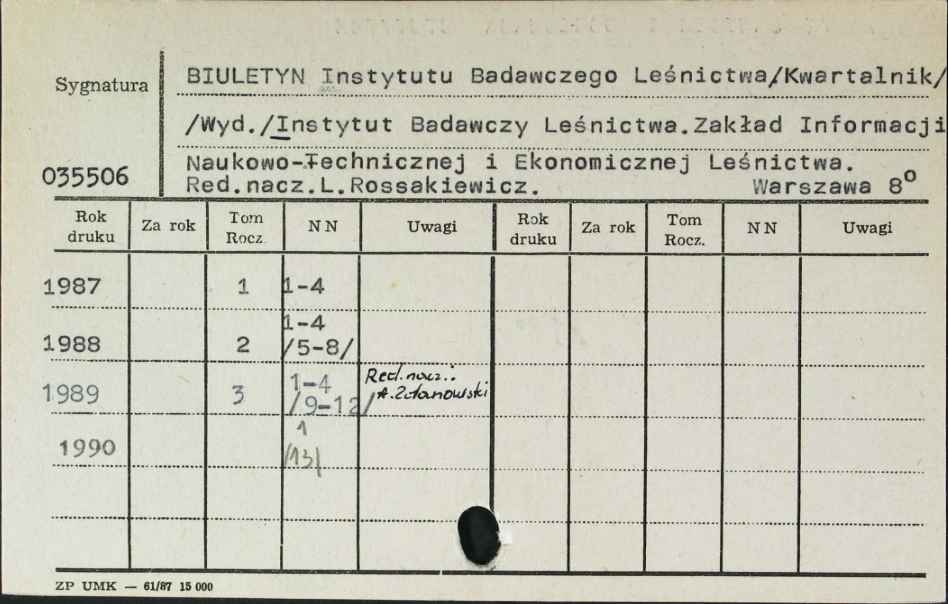 Sygnatura
BIULETYN Instytutu Badawczego Leśnictwa/Kwartalnik/
/Wyd./Instytut Badawczy Leśnictwa.Zakład Informacji
035506
Naukowo-Technicznej i Ekonomicznej Leśnictwa.
Red.nacz.L.Rossakiewicz. Warszawa 8°
Rok druku Za rok Tom Rocz. NN Uwagi Rok druku Za rok Tom Rocz. NN Uwagi
1987 1 1-4
1-4
1988 2 /5-8/
1989 3 1-4 Red.nacz.:
/9-12/ A.
1990 1
/13/
ZP UMK — 61/87 15 000